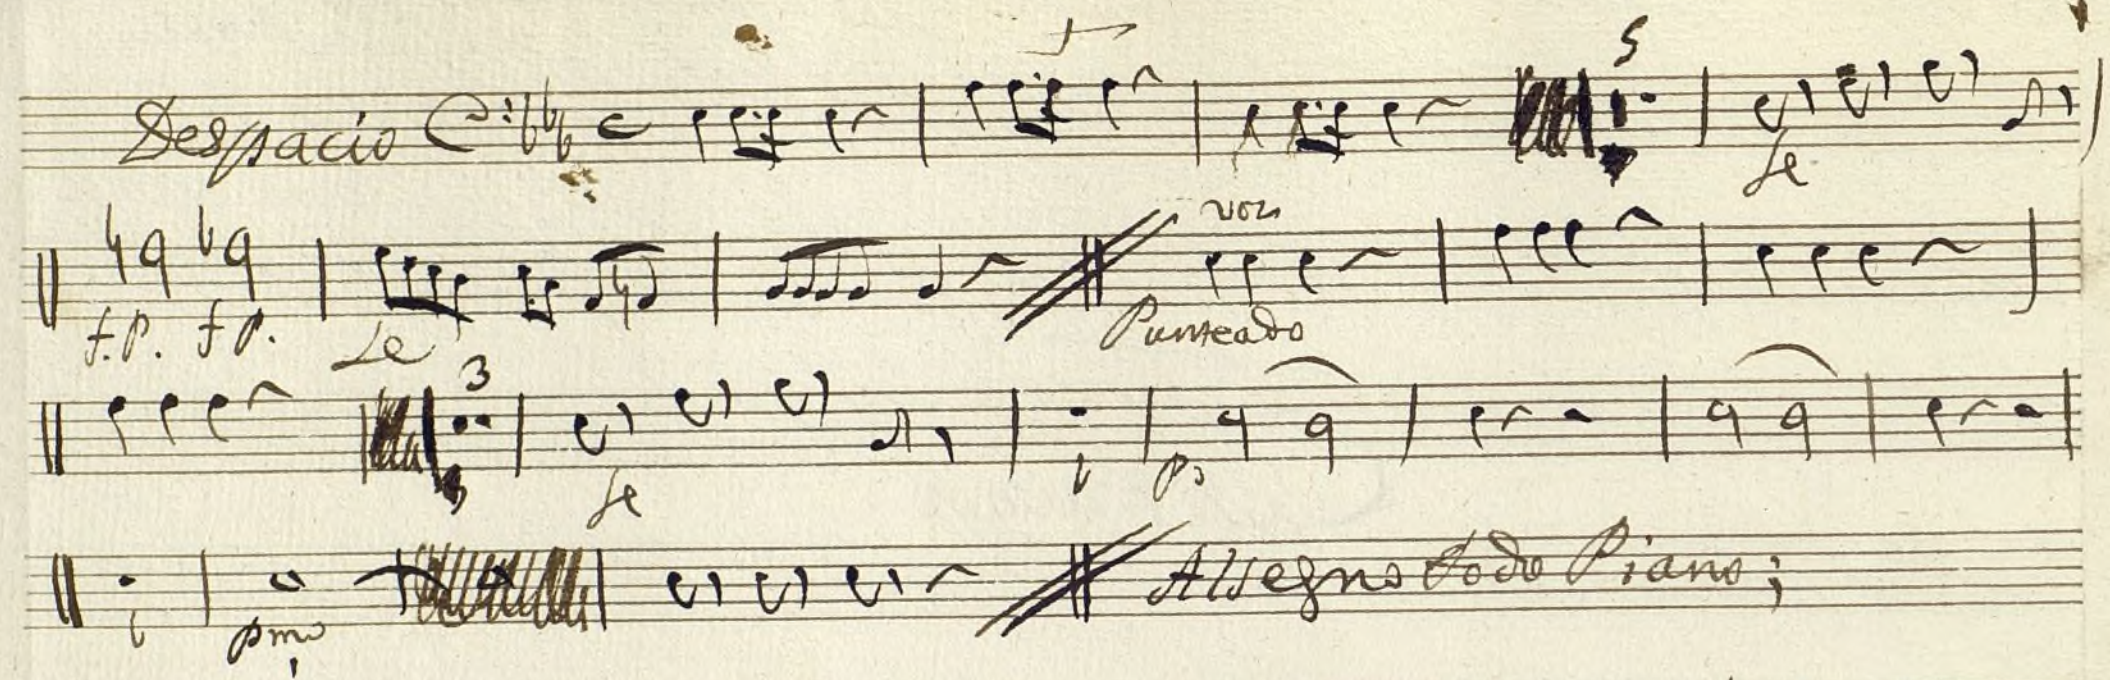 5
Despacio
fe
voz
f.P. f P.
Le
Punteado
3
fe
po
pmo
Al Segno todo Piano;